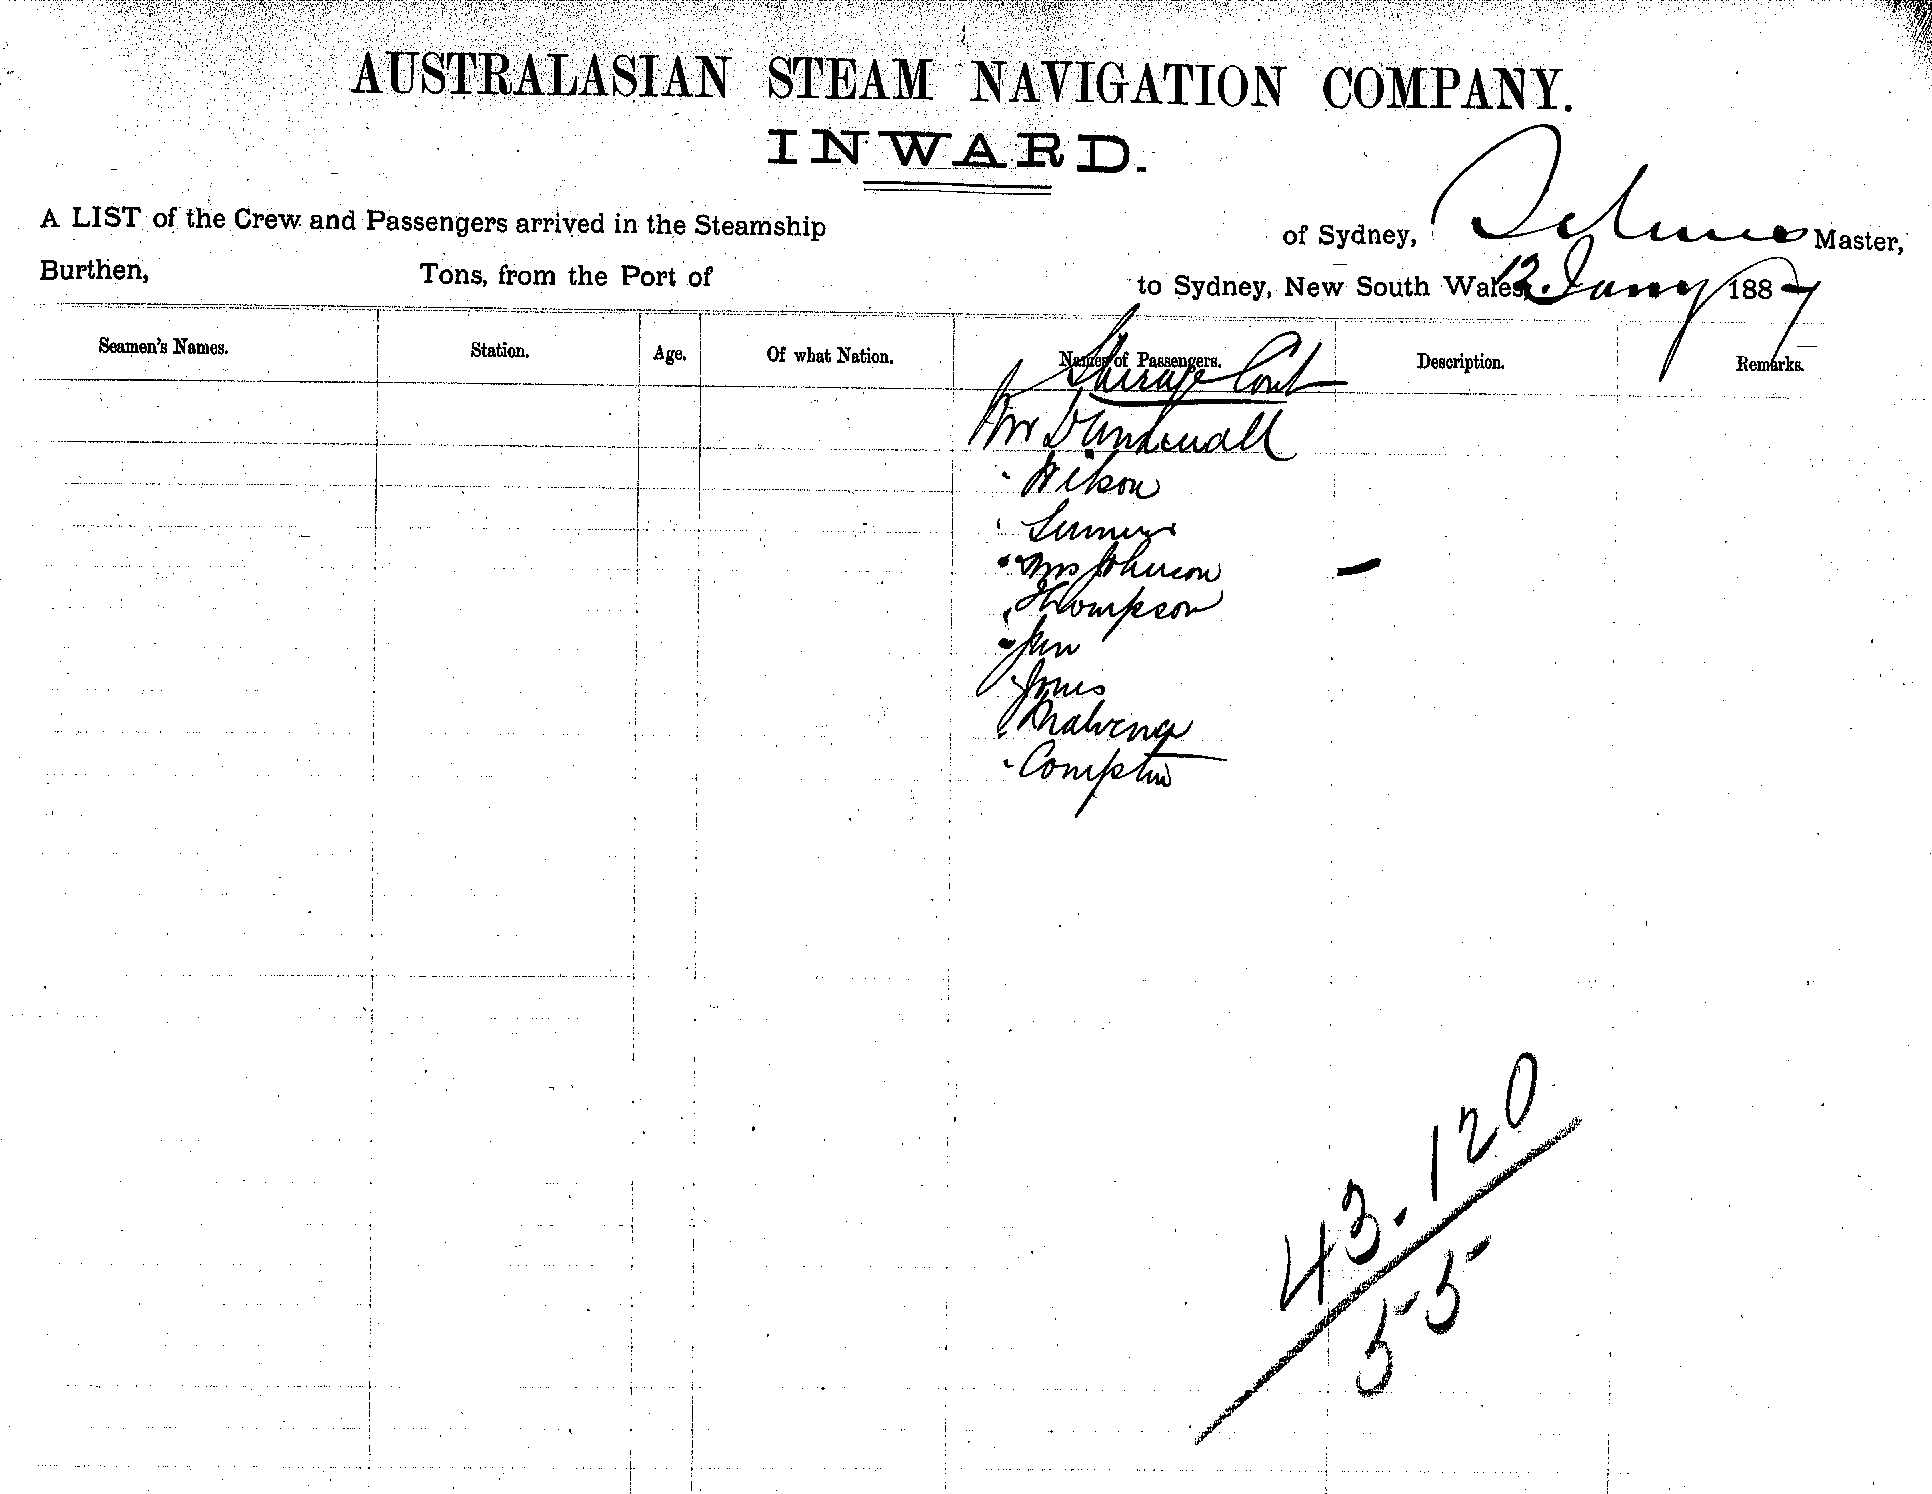 AUSTRALASIAN STEAM NAVIGATION COMPANY.
INWARD.
A LIST of the Crew and Passengers arrived in the Steamship of Sydney, Master,
Burthen, Tons, from the Port of to Sydney, New South Wales 12. Jany 1887
Seamen's Names. Station. Age. Of what Nation. Names of Passengers. Description. Remarks.
Steerage Cont
Mr
" Wilson
"
" Mrs Johnson
" Thompson
"
" Jones
"
" Compton
43.120
55